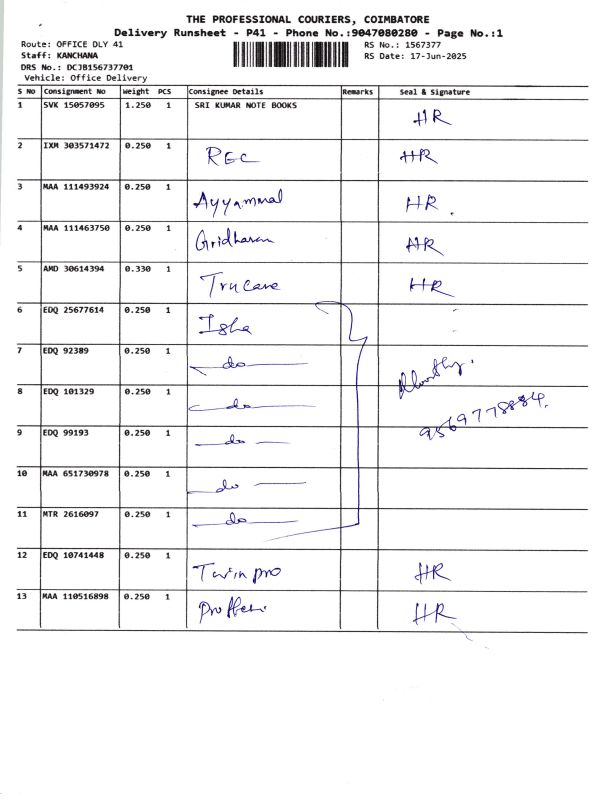 THE PROFESSIONAL COURIERS, COIMBATORE
Delivery Runsheet - P41 - Phone No.:9047080280 - Page No.:1
Route: OFFICE DLY 41 RS No.: 1567377
Staff: KANCHANA RS Date: 17-Jun-2025
DRS No.: DCJB156737701
Vehicle: Office Delivery
S No Consignment No Weight PCS Consignee Details Remarks Seal & Signature
1 SVK 15057095 1.250 1 SRI KUMAR NOTE BOOKS HR
2 IXM 303571472 0.250 1 REC HR
3 MAA 111493924 0.250 1 Ayyammal HR
4 MAA 111463750 0.250 1 Gridharan HR
5 AMD 30614394 0.330 1 Trucare HR
6 EDQ 25677614 0.250 1 Isha
7 EDQ 92389 0.250 1 do
8 EDQ 101329 0.250 1 do
95689778884
9 EDQ 99193 0.250 1 do
10 MAA 651730978 0.250 1 do
11 MTR 2616097 0.250 1 do
12 EDQ 10741448 0.250 1 Twin pro HR
13 MAA 110516898 0.250 1 HR